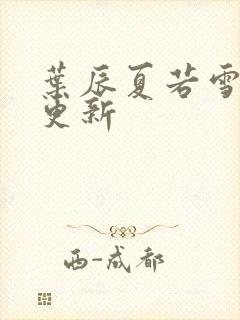 葉辰夏若雪
更新
西-成都